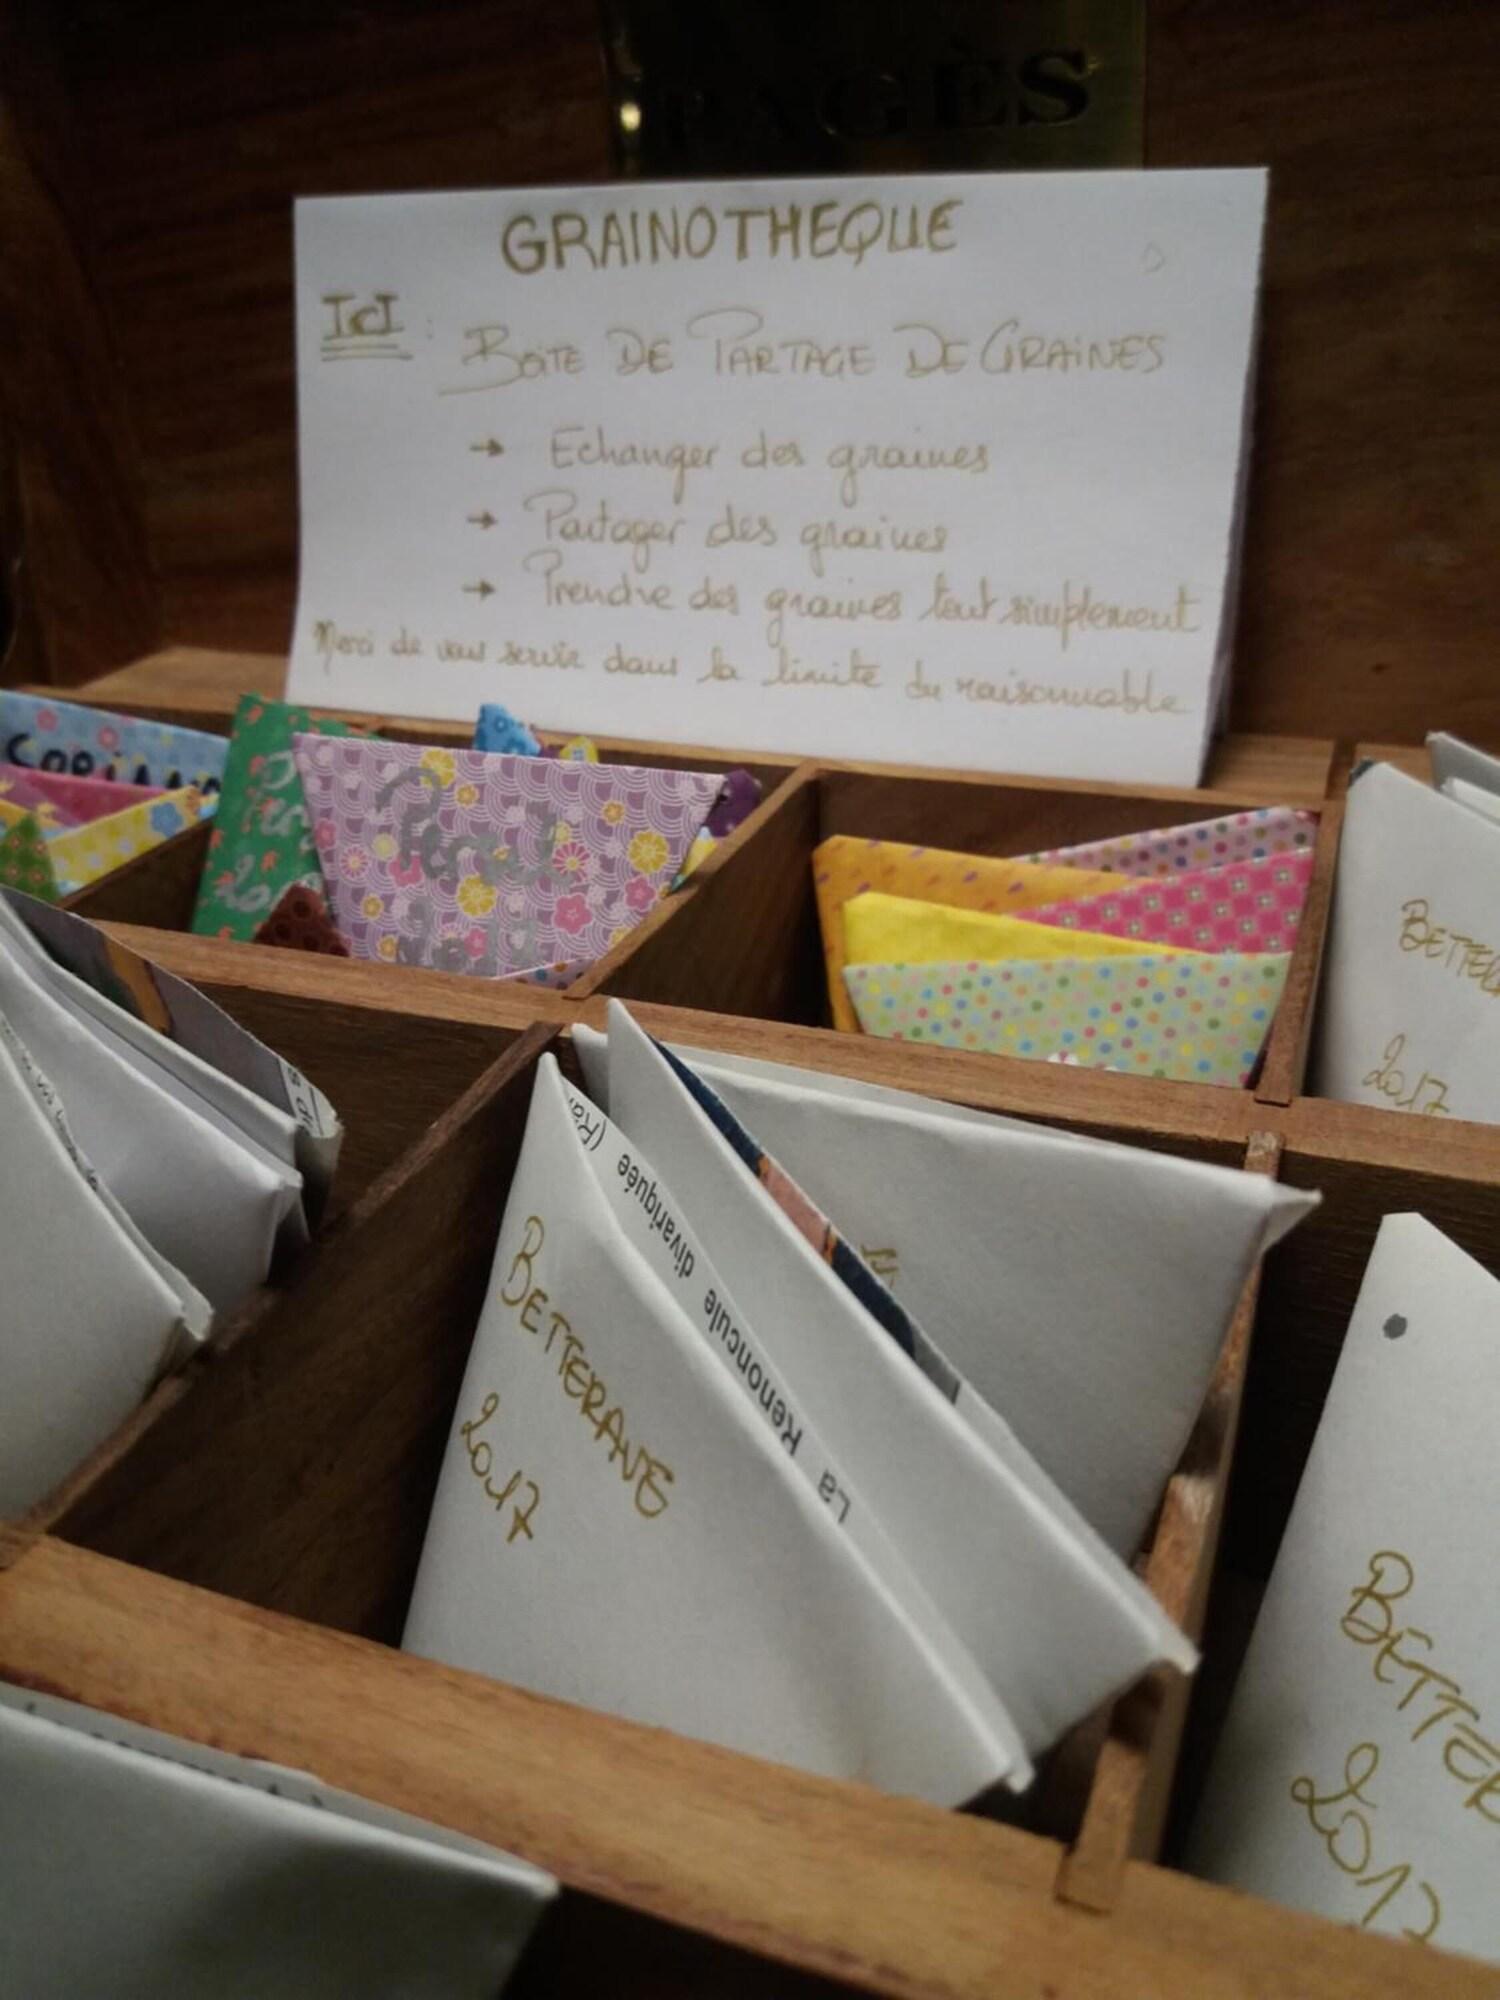 PAGÈS
GRAINOTHEQUE
IcI : BOITE DE PARTAGE DE GRAINES
→ Echanger des graines
→ Partager des graines
→ Prendre des graines tout simplement
Merci de vous servir dans la limite du raisonnable
Persil
2017
BETTE
2017
La Renoncule divariquée (Ra
BETTERAVE
2017
BETTER
2017